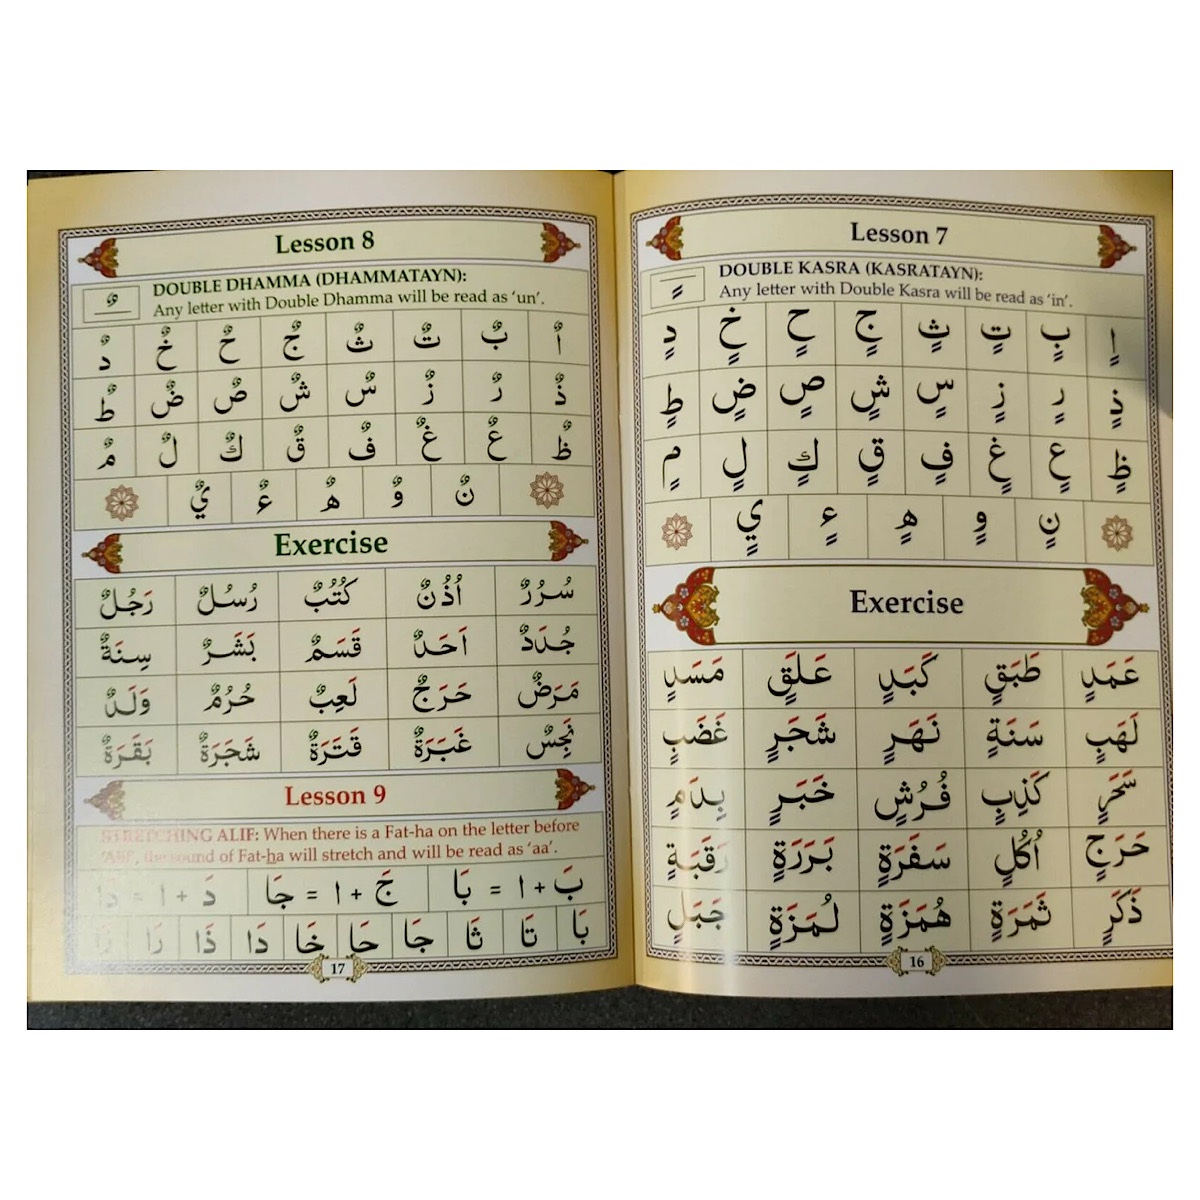 Lesson 7
DOUBLE KASRA (KASRATAYN):
Any letter with Double Kasra will be read as ‘in’.
اٍ بٍ تٍ ثٍ جٍ حٍ خٍ دٍ
ذٍ رٍ زٍ سٍ شٍ صٍ ضٍ طٍ
ظٍ عٍ غٍ فٍ قٍ كٍ لٍ مٍ
نٍ وٍ هٍ ءٍ يٍ
Exercise
عَمَدٍ طَبَقٍ كَبَدٍ عَلَقٍ مَسَدٍ
لَهَبٍ سَنَةٍ نَهَرٍ شَجَرٍ غَضَبٍ
سَحَرٍ كَذِبٍ فُرُشٍ خَبَرٍ بِدَمٍ
حَرَجٍ اُكُلٍ سَفَرَةٍ بَرَرَةٍ رَقَبَةٍ
ذَكَرٍ ثَمَرَةٍ هُمَزَةٍ لُمَزَةٍ جَبَلٍ
16
Lesson 8
DOUBLE DHAMMA (DHAMMATAYN):
Any letter with Double Dhamma will be read as ‘un’.
اٌ بٌ تٌ ثٌ جٌ حٌ خٌ دٌ
ذٌ رٌ زٌ سٌ شٌ صٌ ضٌ طٌ
ظٌ عٌ غٌ فٌ قٌ كٌ لٌ مٌ
نٌ وٌ هٌ ءٌ يٌ
Exercise
سُرُرٌ اُذُنٌ كُتُبٌ رُسُلٌ رَجُلٌ
جُدَدٌ اَحَدٌ قَسَمٌ بَشَرٌ سِنَةٌ
مَرَضٌ حَرَجٌ لَعِبٌ حُرُمٌ وَلَدٌ
نَجِسٌ غَبَرَةٌ قَتَرَةٌ شَجَرَةٌ بَقَرَةٌ
Lesson 9
STRETCHING ALIF: When there is a Fat-ha on the letter before
‘Alif’, the sound of Fat-ha will stretch and will be read as ‘aa’.
بَ + ا = بَا جَ + ا = جَا دَ + ا = دَا
بَا تَا ثَا جَا حَا خَا دَا ذَا رَا
17